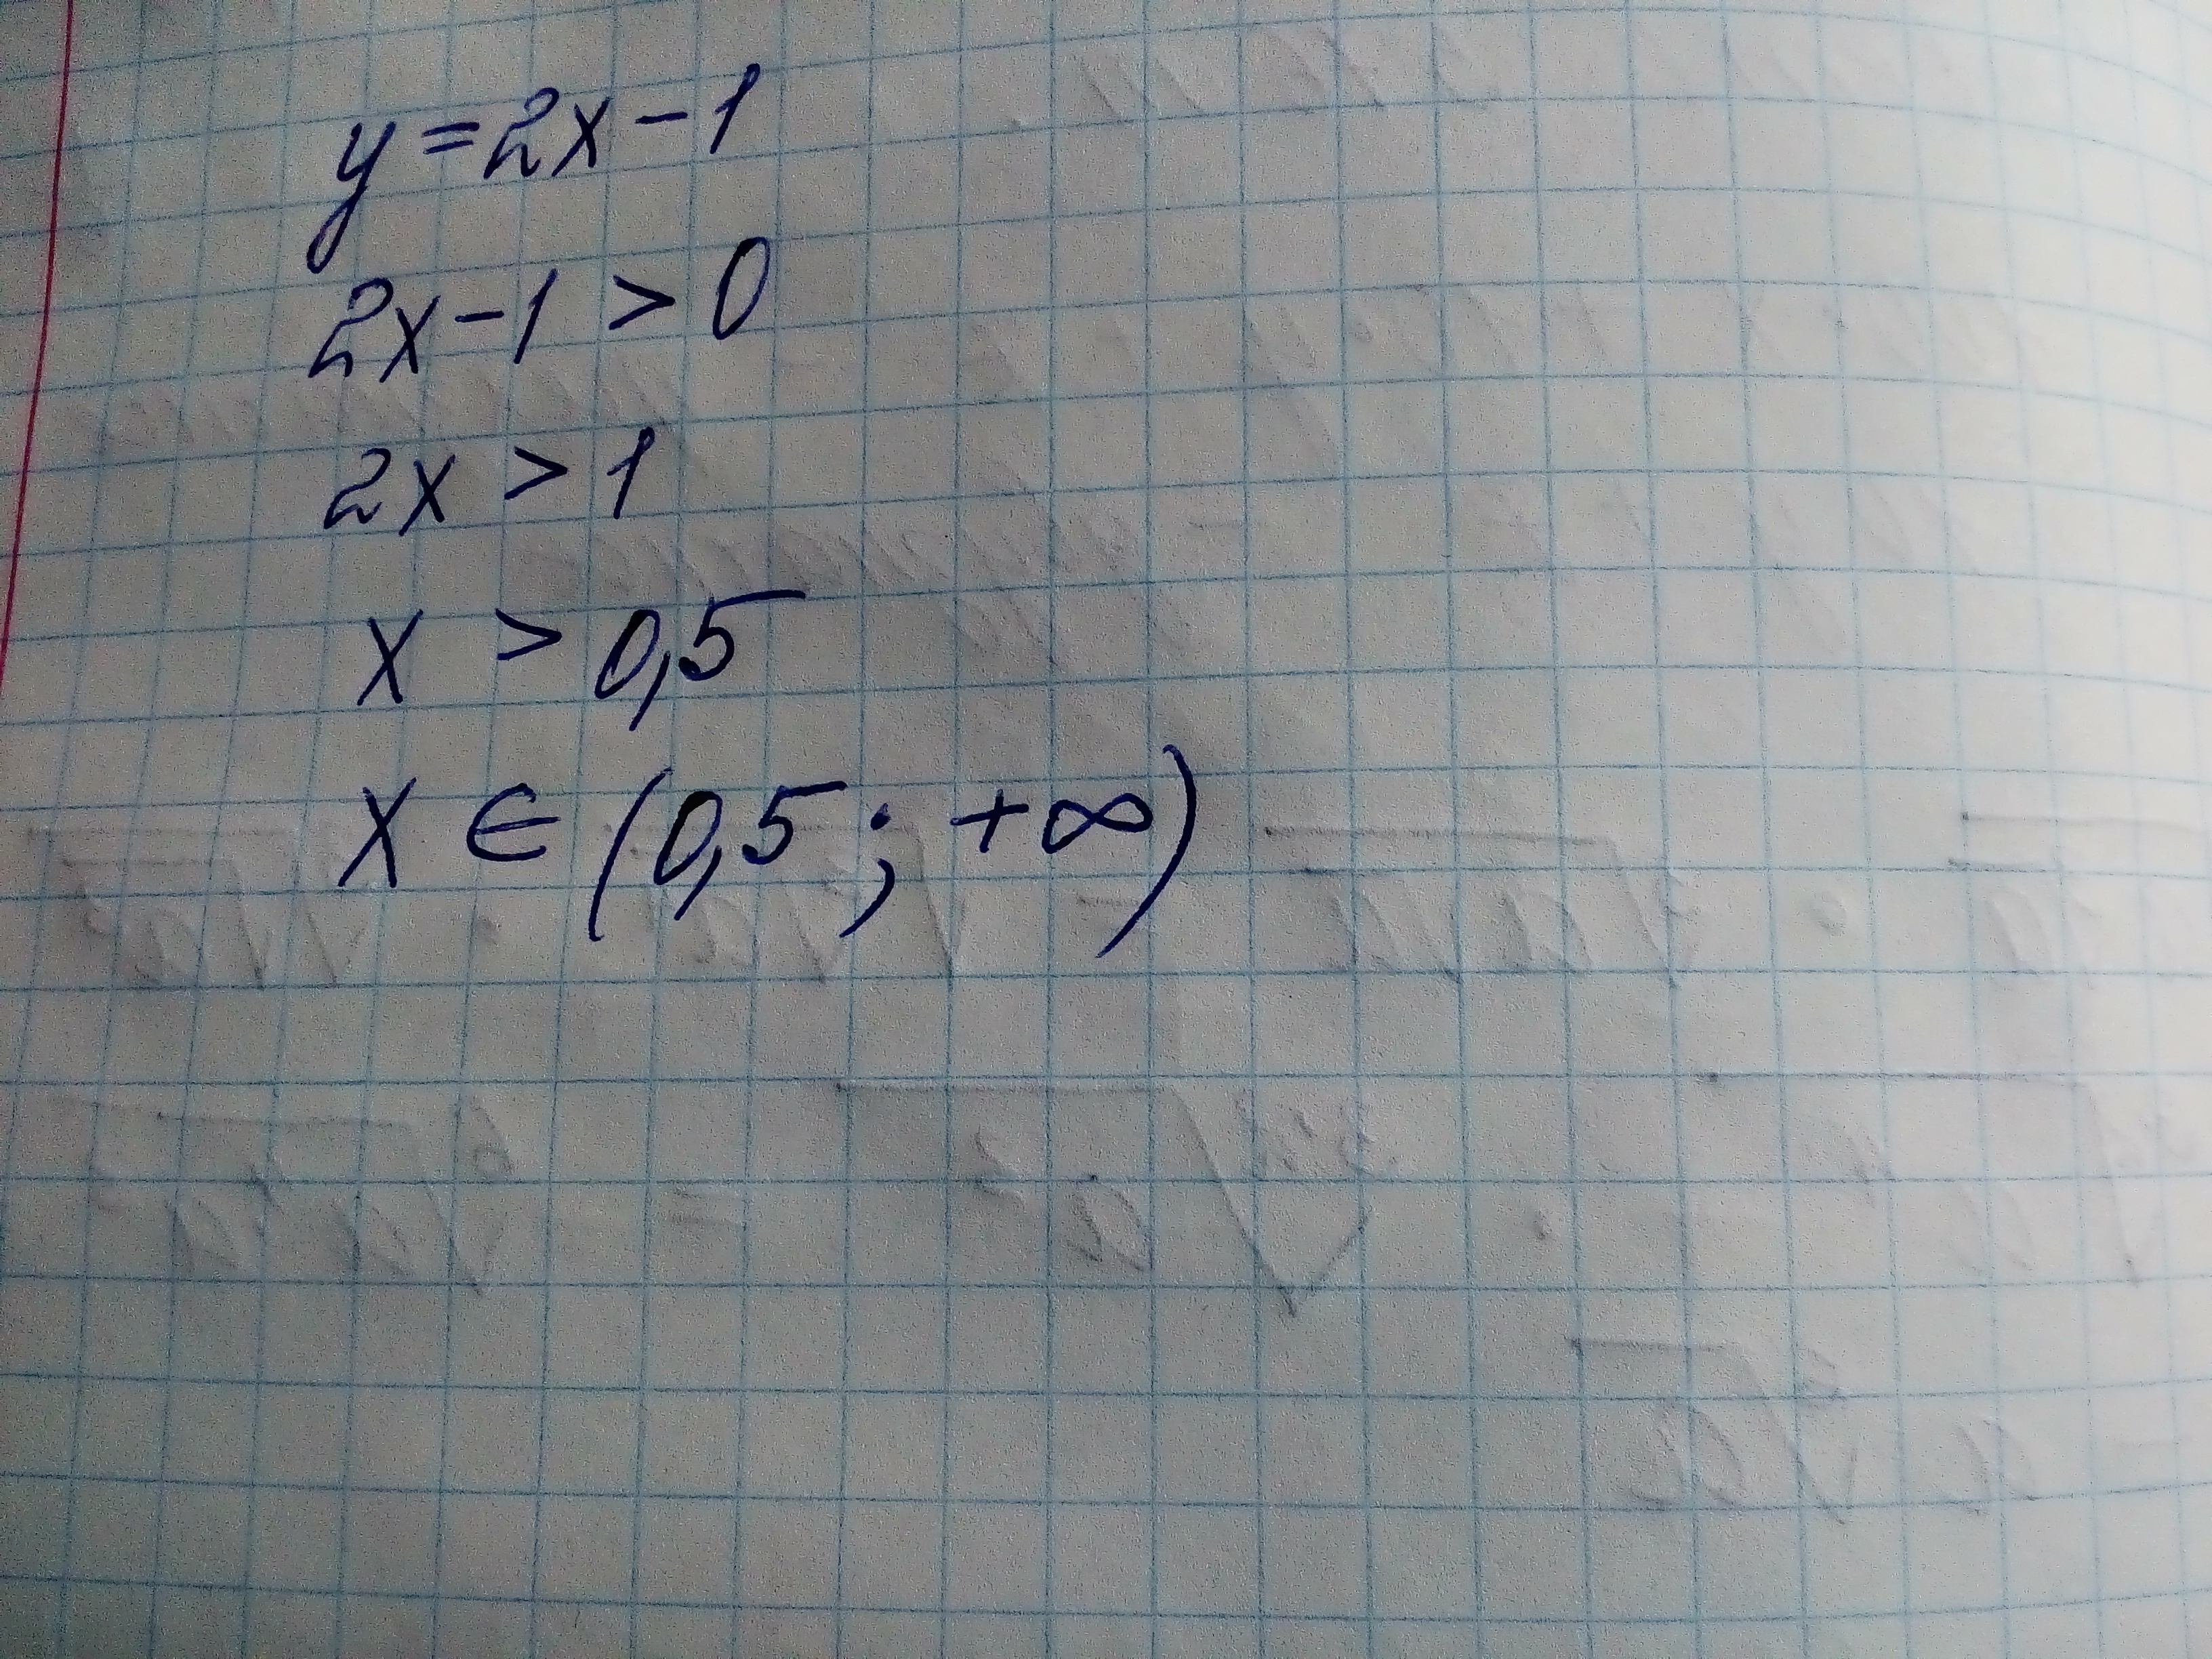 y = 2x - 1
2x - 1 > 0
2x > 1
x > 0,5
x ∈ (0,5 ; +∞)